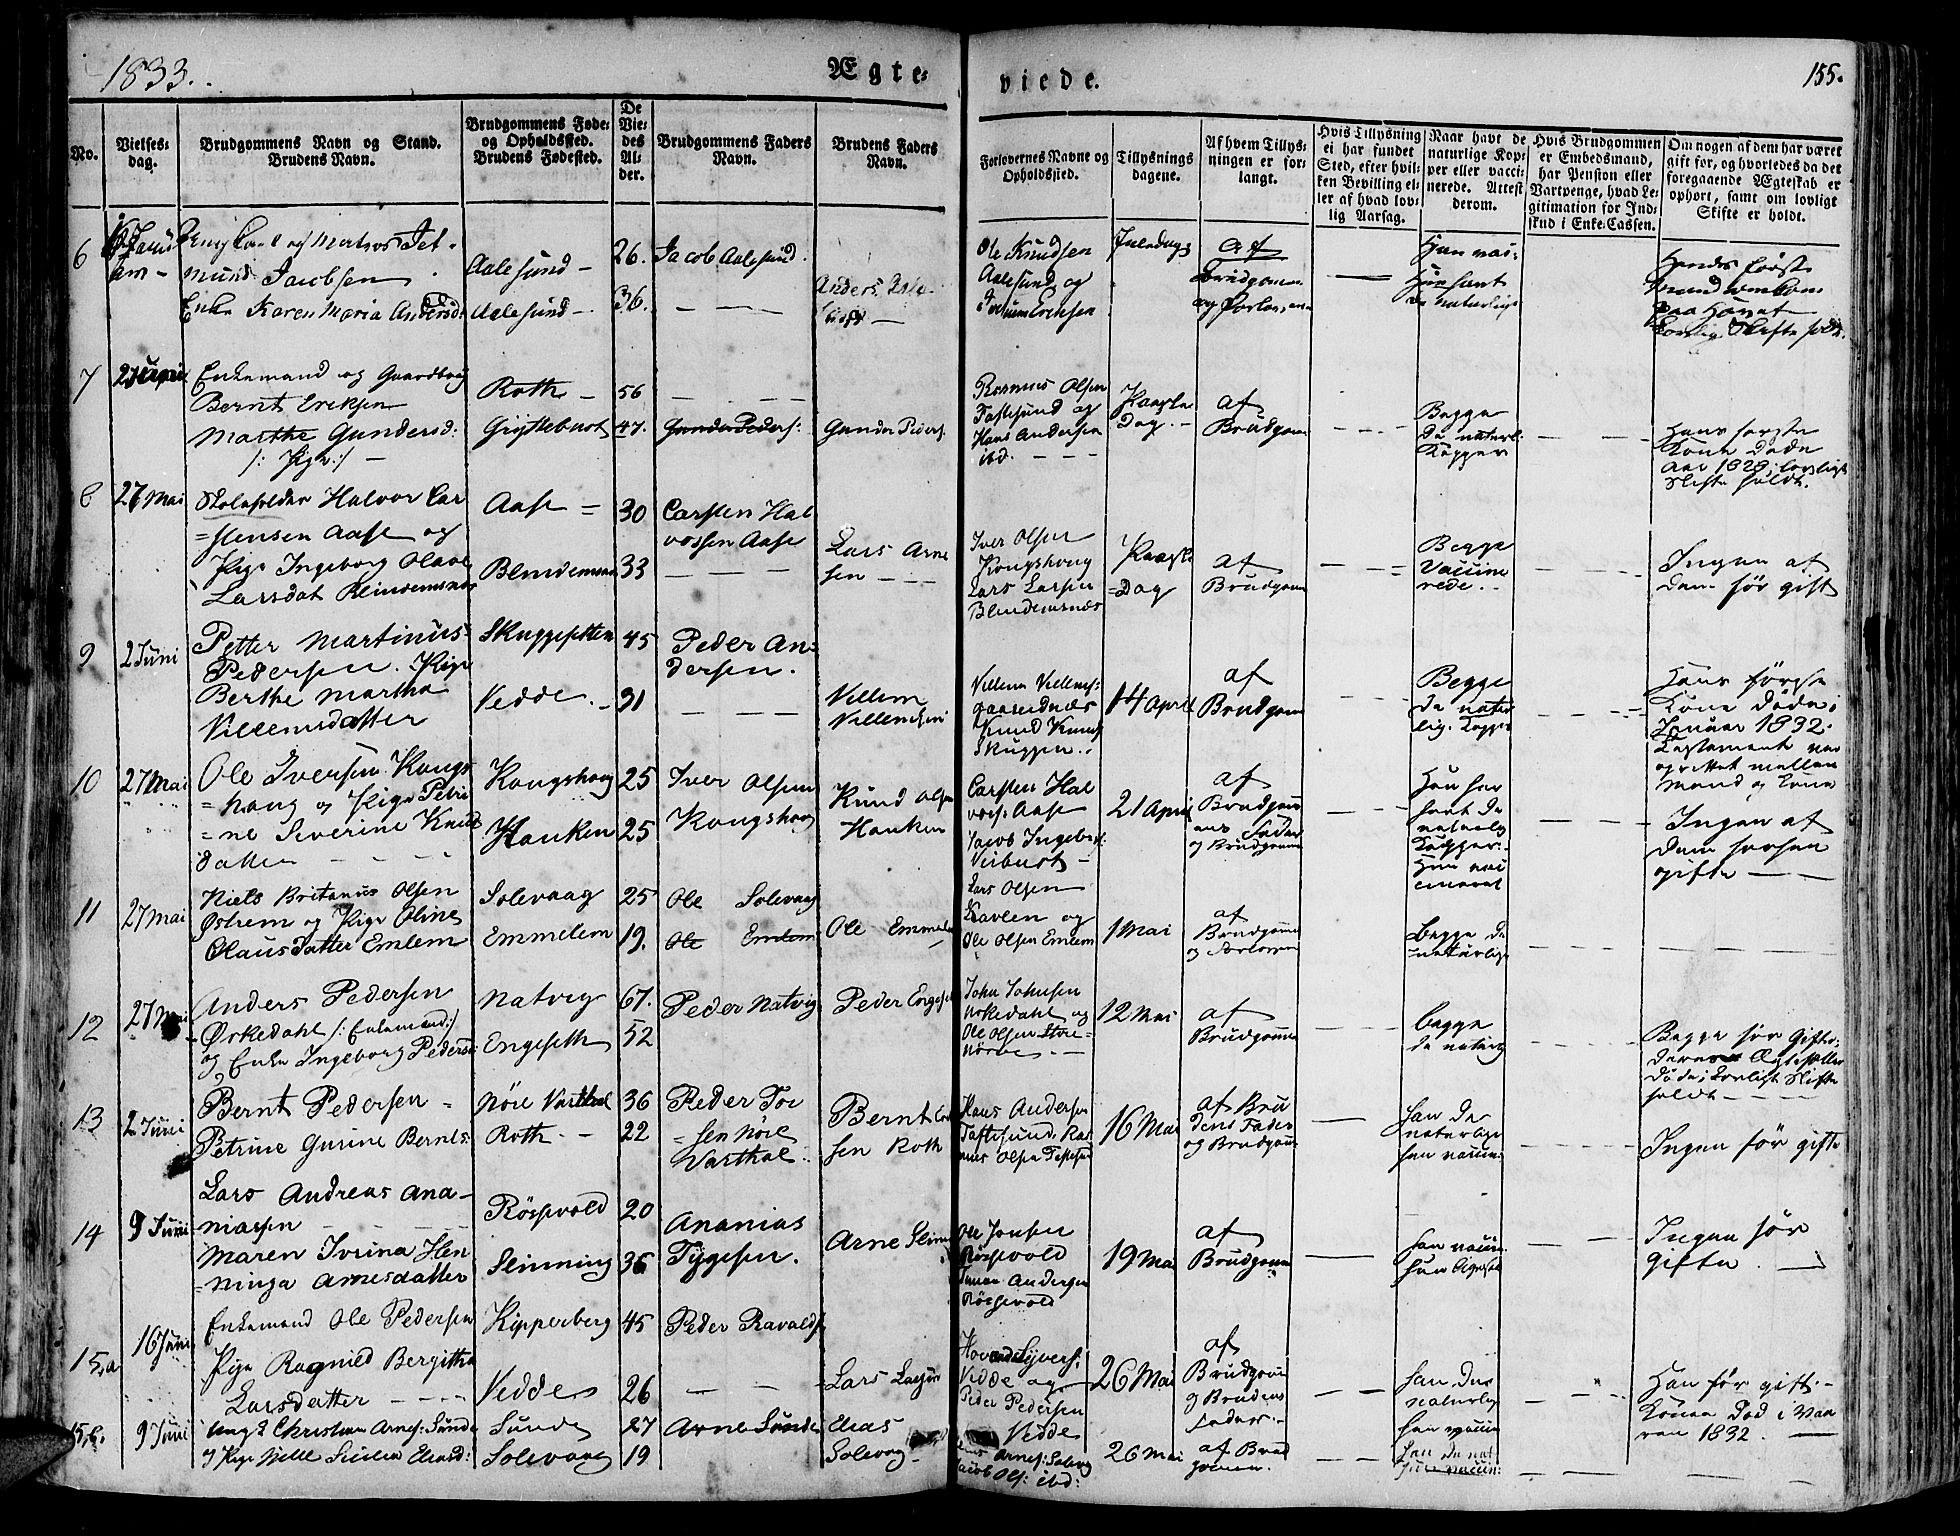 1833.
Ægte-
viede.
155.
No.
Vielses-
dag.
Brudgommens Navn og Stand.
Brudens Navn.
Brudgommens Føde-
og Opholdssted.
Brudens Fødested.
De
Vie-
des
Al-
der.
Brudgommens Faders
Navn.
Brudens Faders
Navn.
Forlovernes Navne og
Opholdssted.
Tillysnings
dagene.
Af hvem Tillys-
ningen er for-
langt.
Hvis Tillysning
ei har fundet
Sted, efter hvil-
ken Bevilling el-
ler af hvad lov-
lig Aarsag.
Naar havt de
naturlige Kop-
per eller vacci-
nerede. Attest
derom.
Hvis Brudgommen
er Embedsmand,
har Pension eller
Vartpenge, hvad Le-
gitimation for Ind-
skud i Enke-Cassen.
Om nogen af dem har været
gift før, og hvorledes da det
foregaaende Ægteskab er
ophørt, samt om lovligt
Skifte er holdt.
6
mund Jacobsen
Enke Karen Maria Andersd:
Aalesund -
Aalesund -
26.
36.
Jacob Aalesund.
Anders
Ole Knudsen
Aalesund og
Juledag
Af
Brudgomen
og Forlov
Han vac-
Hun havt
de naturlige
Hendes første
Mand omkom
paa Havet
Lovlig Skifte hold.
7
Enkemand og Gaardbrug
Bernt Eriksen
Marthe Gundersd:
/: Pige :/ -
Roth -
56
47.
Gunder Peders:
Gunder Peders.
Rasmus Olsen
Tastesund og
Hans Andersen
ibd.
Paaske
Dag.
af
Brudgom
Begge
de naturl.
Kopper
Hans første
Kone døde
Aar 1828, lovligt
Skifte holdt.
8
27 Mai
Skoleholder Halvor Car
=stensen Aase og
Pige Ingeborg Olave
Larsdat Blindemsnæs
Aase =
Blindemsnæs
30
33
Carsten Hal
vorsen Aase
Lars Arne
sen
Iver Olsen
Kongshoug
Lars Larsen
Blindemsnæs
Paaske
=Dag
af
Brudgom
Begge
Vaccine
rede.
Ingen af
dem før gift
9
2 Juni
Petter Martinus
Pedersen. Pige
Berthe Martha
Villemsdatter
Skuggesetten
Vedde.
45
31
Peder An-
dersen.
Villem
Villemsen
Villem Villems:
Gaaseidnæs
Knud Knuds
Skuggen.
14 April
af
Brudgom
Begge
de natur
lig. Kopper
Hans første
Kone døde i
Januar 1832.
Testament var
oprettet mellem
Mand og Kone
10
27 Mai
Ole Iversen Kongs
=houg og Pige Petri
=ne Severine Knuds
datter
Kongshoug
Hauken
25
25
Iver Olsen
Kongshoug
Knud Olsen
Hauken
Carsten Hal
vors: Aase
Jacob Ingebr:
Veibust -
21 April
af
Brudgom
ens Fader
og Brudgom
Han har
havt de
naturlig
Kopper.
Hun vac
cineret
Ingen af
dem forhen
gifte
11
27 Mai
Niels Britanus Olsen
Østrem og Pige Oline
Olausdatter Emlem
Solevaag
Emmelem
25
19.
Ole Solevaag
Ole Emlem
Ole Emmelem
Lars Olsen
og
Ole Olsen Emlem
1 Mai
af
Brudgom
og Forlover
Begge de
naturlige
12
27 Mai
Anders Pedersen
Ørskedahl /: Enkemand :/
og Enke Ingeborg Peders
Natvig
Engeseth
67.
52
Peder Natvig
Peder Engeset
John Johnsen
Ørskedahl og
Ole Olsen Store-
Nørve.
12 Mai
af
Brudgomen
Begge
de naturlig
Begge før gifte,
deres Ægtefæller
døde, Lovligt Skifte
holdt
13
2 Juni
Bernt Pedersen
Petrine Gurine Bernts:
Nöre Vartdal
Roth
36
22
Peder Tor
=sen Nöre
Vartdal.
Bernt Erik
sen Roth
Hans Andersen
Tastesund, Ras
mus Olsen Tastesun
16 Mai
af Bru
dens Fader
og Brudgom
Han de
naturlige
Hun vaccin:
Ingen før gifte
14
9 Juni
Lars Andreas Ana-
niassen
Maren Ivrina Hen
=ninga Arnesdatter
Rössevold
Slinning
20
36
Ananias
Tygesen.
Arne Slinni
Ole Jonsen
Rössevold
Andersen
Rössevold
19 Mai
af
Brudgom
Han vaccin.
Ingen før
gifte.
15,a
16 Juni
Enkemand Ole Pedersen
Pige Ragnild Bergitha
Larsdatter
Kipperberg
Vedde
45
26
Peder Ravalds
Lars
Vedde og
Peder Pedersen
Vedde
26 Mai
af
Brudgom
og Brudens
Fader.
Han de
naturlig
Hun vaccin
Han før gift.
Konen død i Vaa
ren 1832.
15,b.
9 Juni
Ungk Christian Arnes: Sunde
Eliasd:
Sunde
Solevaag
27
19
Arne Sunde
Elias
Solevaag
Arnes: Solevg
Jacob Ols: ibd:
26 Mai
af Brud
gomen.
Han de nat
Hun vaccin: